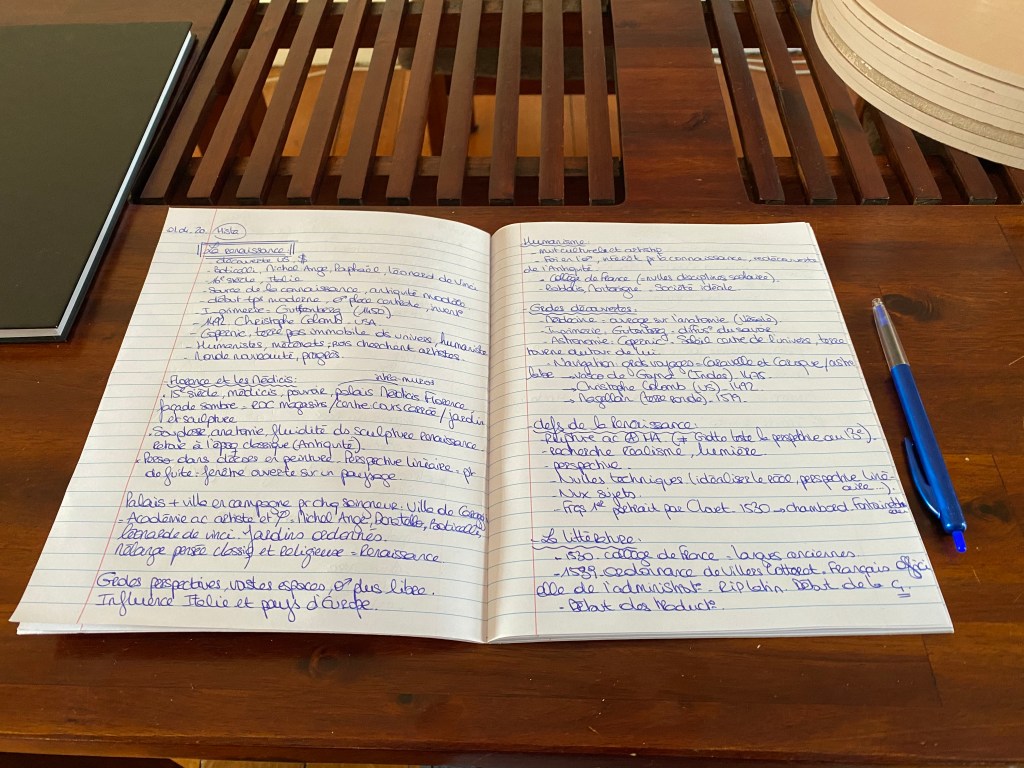 01.04.20. Histo
La Renaissance
- découverte US, $
- Boticelli, Michel Ange, Raphaël, Léonard de Vinci
- 16e siècle, Italie
- Source de la connaissance, antiquité modèle
- début tps moderne, place centrale,
- Imprimerie = Guttenberg (1450)
- 1492. Christophe Colomb. USA.
- Copernic, terre pas immobile de univers, humaniste
- Humanistes, mécénats, rois cherchent artistes.
- Monde nouveauté, progrès.
Florence et les Médicis: intra-muros
- 15e siècle, médicis, pouvoir, palais Médicis Florence,
façade sombre = RDC magasins / centre cours carrée / jardin
et sculpture
- Souplesse, anatomie, fluidité ds sculpture Renaissance
Retour à l'époq classique (Antiquité).
- Passe dans décors en peinture. Perspective linéaire = pt
de fuite = fenêtre ouverte sur un paysage
Palais + ville en campagne pr chg seigneur = Villa de
- Académie ac artiste et φ. Michel Ange, Donatello, Boticelli,
Léonard de vinci. Jardins ordonnés.
Mélange pensée classiq et religieuse = Renaissance
Grdes perspectives, vastes espaces, plus libre.
Influence Italie et pays d'Europe.
Humanisme
- mvt culturel et artistiq
- Foi en l' , intérêt pr connaissance, redécouverte
de l'Antiquité.
- Collège de France (= nvlles disciplines scolaire).
- Rablais, Montaigne. Société idéale
Grdes découvertes:
- Médecine = ouvrage sur l'anatomie (Vésale)
- Imprimerie = Gutenberg = diffus° du savoir
- Astronomie = Copernic = Soleil centre de l'univers, terre
tourne autour de lui
- Navigation = grds voyages = Caravelle et Caraque / astro
labe - Vasco de Gama (Indes)
→ Christophe Colomb (US) - 1492
→ Magellan (terre ronde) - 1519.
defs de la Renaissance:
- Rupture ac MA (≠ Giotto tente la perspective au 13e).
- recherche Réalisme, lumière
- perspective
- Nvlles techniques (idéaliser le réel, perspective liné-
aire).
- Nvx sujets
- Frçs 1er portrait par Clouet. 1530 → chambord
- La Littérature.
- 1530 = collège de France = langues anciennes
- 1539. Ordonnance de Villers Cotterêt = Français offici
elle de l'administrat°. RIP latin. Début de la
- Début des traduct°.